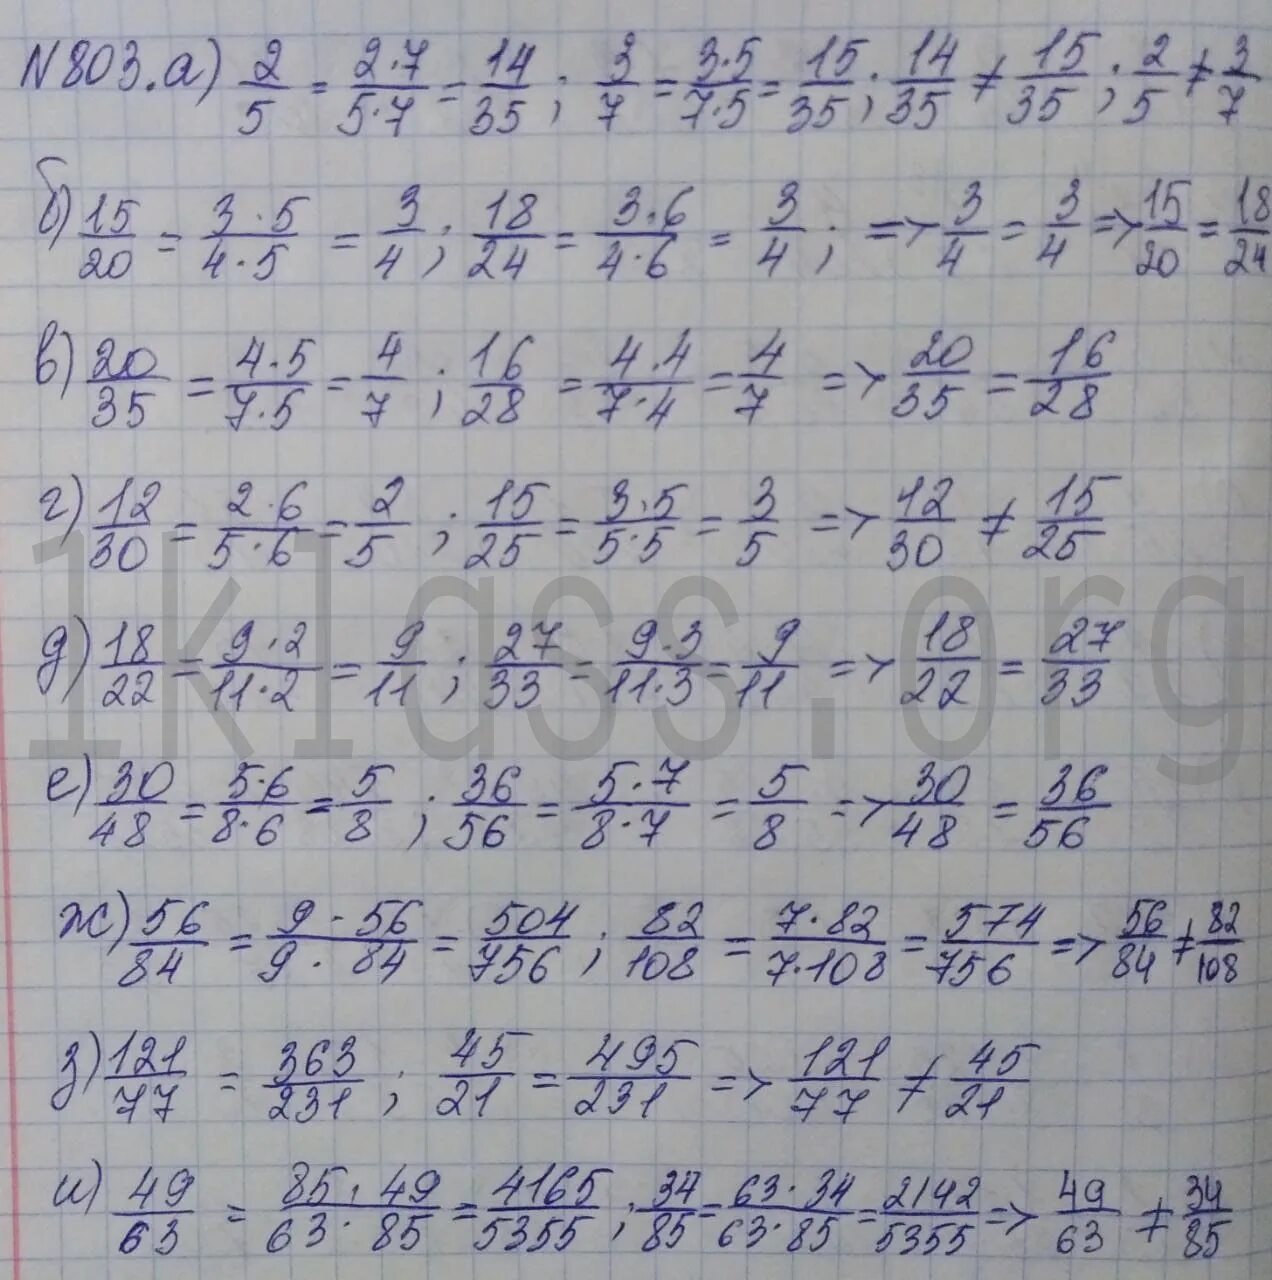 №803. а) 2/5 = 2·7/5·7 = 14/35 ; 3/7 = 3·5/7·5 = 15/35 ; 14/35 ≠ 15/35 ; 2/5 ≠ 3/7
б) 15/20 = 3·5/4·5 = 3/4 ; 18/24 = 3·6/4·6 = 3/4 ; => 3/4 = 3/4 => 15/20 = 18/24
в) 20/35 = 4·5/7·5 = 4/7 ; 16/28 = 4·4/7·4 = 4/7 => 20/35 = 16/28
г) 12/30 = 2·6/5·6 = 2/5 ; 15/25 = 3·5/5·5 = 3/5 => 12/30 ≠ 15/25
д) 18/22 = 9·2/11·2 = 9/11 ; 27/33 = 9·3/11·3 = 9/11 => 18/22 = 27/33
е) 30/48 = 5·6/8·6 = 5/8 ; 36/56 = 5·7/8·7 = 5/8 => 30/48 = 36/56
ж) 56/84 = 9·56/9·84 = 504/756 ; 82/108 = 7·82/7·108 = 574/756 => 56/84 ≠ 82/108
з) 121/77 = 363/231 ; 45/21 = 495/231 => 121/77 ≠ 45/21
и) 49/63 = 85·49/63·85 = 4165/5355 ; 34/85 = 63·34/63·85 = 2142/5355 => 49/63 ≠ 34/85
1klass.org